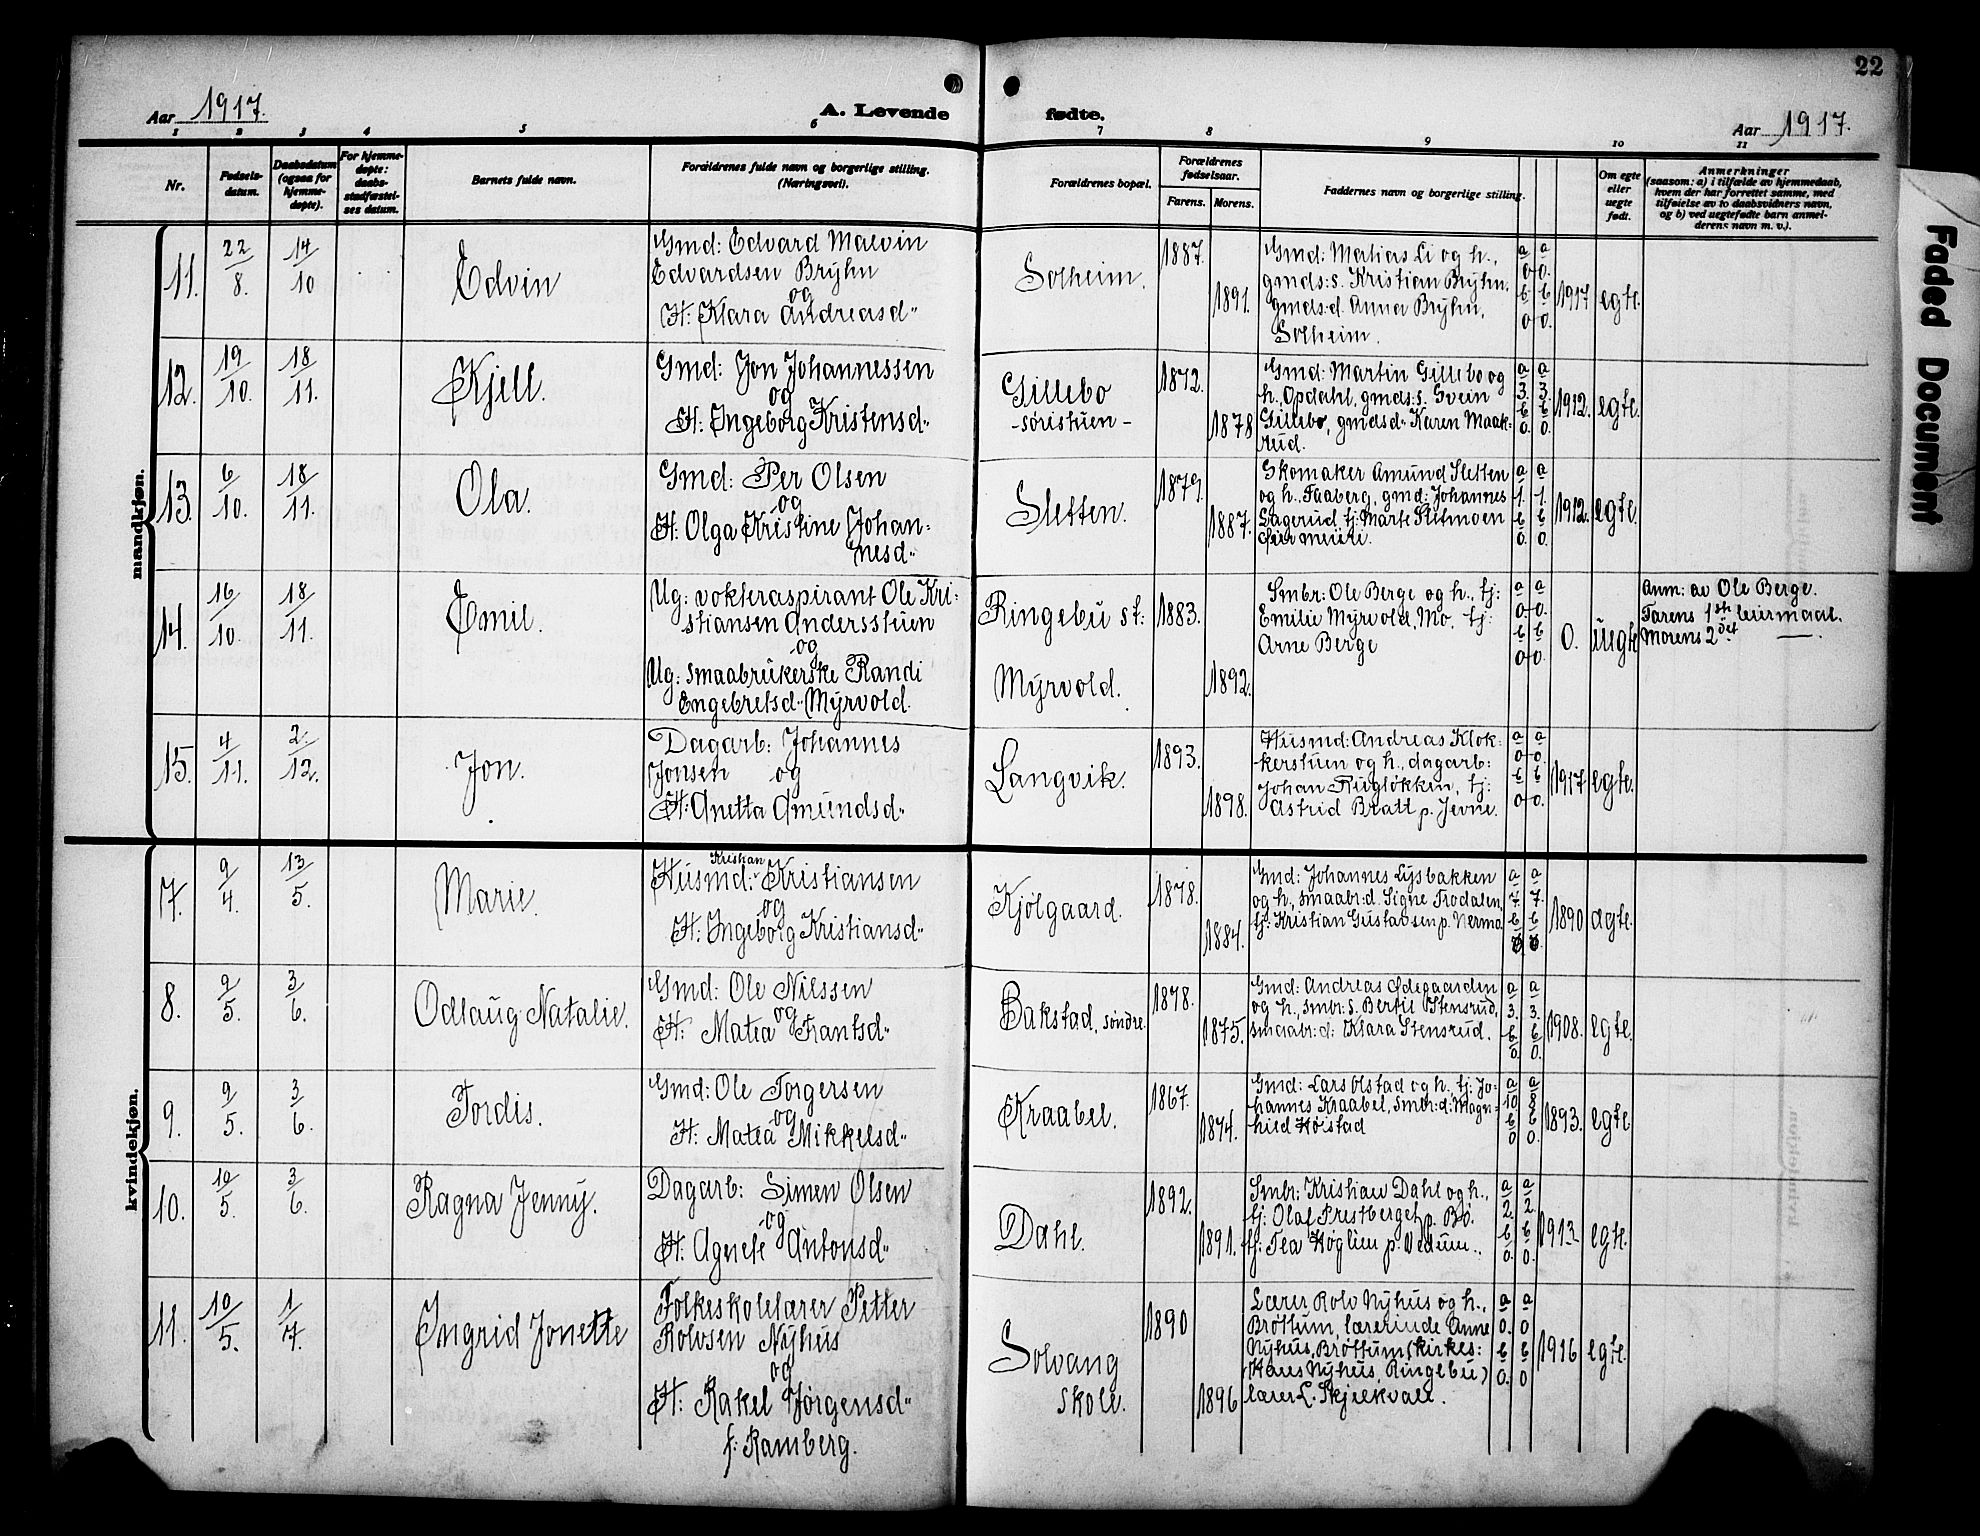 22
Aar 1917.
A. Levende
fødte.
Aar 1917.
1 2 3 4 5 6 7 8 9 10 11
Nr.
Fødsels-
datum.
Daabsdatum
(ogsaa for
hjemme-
døpte).
For hjemme-
døpte:
daabs-
stadfæstel-
ses datum.
Barnets fulde navn.
Forældrenes fulde navn og borgerlige stilling.
(Næringsvei).
Forældrenes bopæl.
Forældrenes
fødselsaar.
Farens. Morens.
Faddernes navn og borgerlige stilling.
Om egte
eller
uegte
født.
Anmerkninger
(saasom: a) i tilfælde av hjemmedaab,
hvem der har forrettet samme, med
tilføielse av to daabsvidners navn,
og b) ved uegtefødte barn anmel-
derens navn m. v.).
Faded Document
mandkjøn.
11. 22/8. 14/10 Edvin
Gmd: Edvard Malvin
Edvardsen Bryhn
og
H: Klara Andreasd"
Solheim. 1887. 1891.
Gmd: Matias Li og h.,
gmds:s. Kristian Bryhn,
gmds:d. Anna Bryhn,
Solheim.
a 0 b 0 a 0. b 0. 1917 egte.
12. 19/10. 18/11. Kjell.
Gmd: Jon Johannessen
og
H: Ingeborg Kristensd"
Gillebo
-søristuen-
1872. 1878
Gmd: Martin Gillebo og
h., Opdahl, gmds:s. Svein
Gillebo, gmdsd" Karen Maak-
rud.
a 3. b 0. a 3. b 0. 1912. egte.
13. 6/10. 18/11. Ola.
Gmd: Per Olsen
og
H: Olga Kristine Johan-
nesd"
Sletten. 1879. 1887.
Skomaker Amund Sletten
og h., Faaberg, gmd: Johannes
Sagerud, tj: Marte Slitmoen
a 1. b 0. a 1. b 0. 1912. egte.
14. 16/10. 18/11. Emil.
Ug: vokteraspirant Ole Kri-
stiansen Andersstuen
og
Ug: smaabrukerske Randi
Engebretsd" Myrvold.
Ringebu st:
Myrvold.
1883. 1892.
Smbr: Ole Berge og h., tj:
Emilie Myrvold, Mo, tj:
Arne Berge
a 0 b 0 a 0. b 0. 0. uegte
Anm: av Ole Berge.
Farens 1ste leiermaal.
Morens 2det —
15. 4/11. 2./12. Jon.
Dagarb: Johannes
Jonsen og
H: Anetta Amundsd"
Langvik. 1893. 1898.
Husmd: Andreas Klok-
kerstuen og h., dagarb:
Johan Rugløkken, tj:
Astrid Bratt p. Jevne.
a 0 b 0 a 0. b 0. 1917 egte.
kvindekjøn.
7. 9/4. 13/5. Marie.
Kristian
Husmd: Kristiansen
og
H: Ingeborg Kristiansd"
Kjølgaard. 1878. 1884.
Gmd: Johannes Lysbakken
og h., smaabr:d. Signe Trodalen,
tj: Kristian Gustavsen p. Nermo
a 7. b a 7. b 1890 ægte.
8. 9/5. 3/6. Odlaug Natalie.
Gmd: Ole Nilssen
og
H: Matea Frantsd"
Bakstad, søndre. 1878. 1875.
Gmd: Andreas Ødegaarden
og h., smbr:s. Bertil Stensrud,
smaabr:d: Klara Stensrud.
a 3. b 0. a 3. b 0. 1908. egte.
9. 9/5. 3/6. Tordis.
Gmd: Ole Torgersen
og
H: Matea Mikkelsd"
Kraabel. 1867. 1874.
Gmd: Lars Olstad og h. tj: Jo-
hannes Kraabel, smbr:d: Magn-
hild Høistad
a 10 b 0 a 8 b 0. 1893. egte.
10. 10/5. 3/6. Ragna Jenny.
Dagarb: Simen Olsen
og
H: Agnete Antonsd"
Dahl. 1892. 1891.
Smbr: Kristian Dahl og h.,
tj: Olaf Prestberget p. Bø.
tj: Tea Høglien p. Vedum.
a 2. b 0. a 2. b 0. 1913. egte.
11. 10/5. 1/7. Ingrid Jonette
Folkeskolelærer Petter
Rolvsen Nyhus
og
H: Rakel Jørgensd"
f: Ramberg.
Solvang
skole.
1890 1896
Lærer Rolv Nyhus og h.,
Brøttum, lærerinde Anne
Nyhus, Brøttum, (kirkes:
Hans Nyhus, Ringebu)
lærer L. Skjelkvale.
a 0. b 0. a 0 b 0 1916 egte.